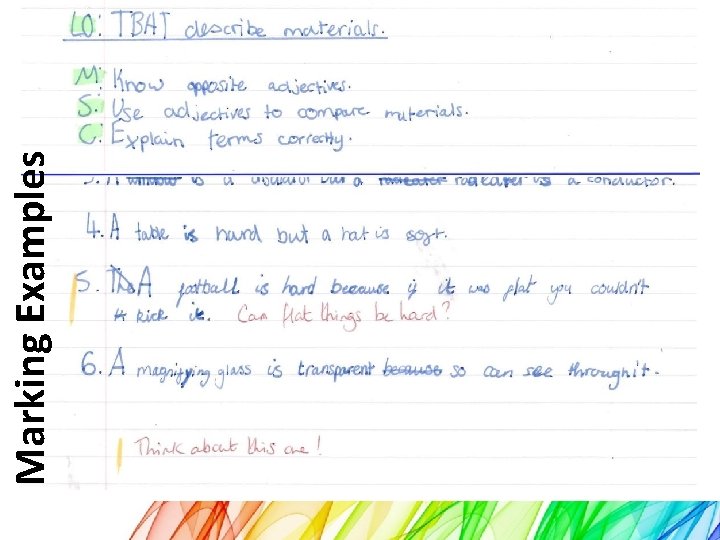 Marking Examples
LO: TBAT describe materials.
M: Know opposite adjectives.
S: Use adjectives to compare materials.
C: Explain terms correctly.
is a but a vs a conductor.
4. A table is hard but a hat is soft.
5. A football is hard because if it was flat you couldn't
kick it. Can flat things be hard?
6. A magnifying glass is transparent because so can see through it.
Think about this one!